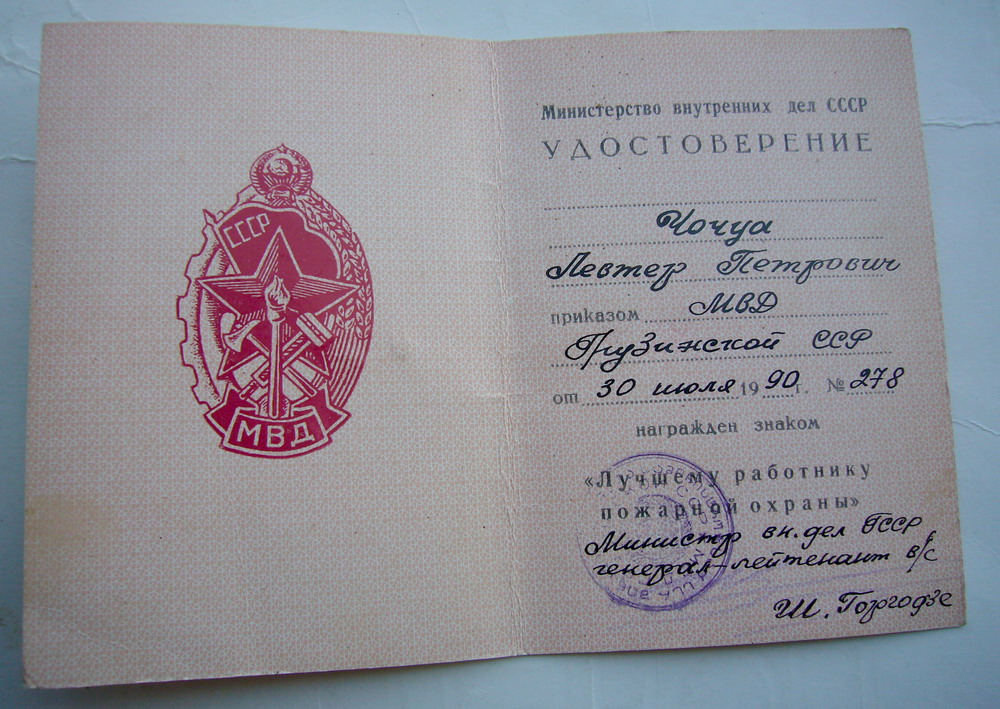 СССР
МВД
Министерство внутренних дел СССР
УДОСТОВЕРЕНИЕ
Чочуа
Левтер Петрович
приказом МВД
Грузинской ССР
от 30 июля 1990 г. № 278
награжден знаком
«Лучшему работнику
пожарной охраны»
Министр вн. дел ГССР
генерал-лейтенант в/с
Ш. Горгодзе